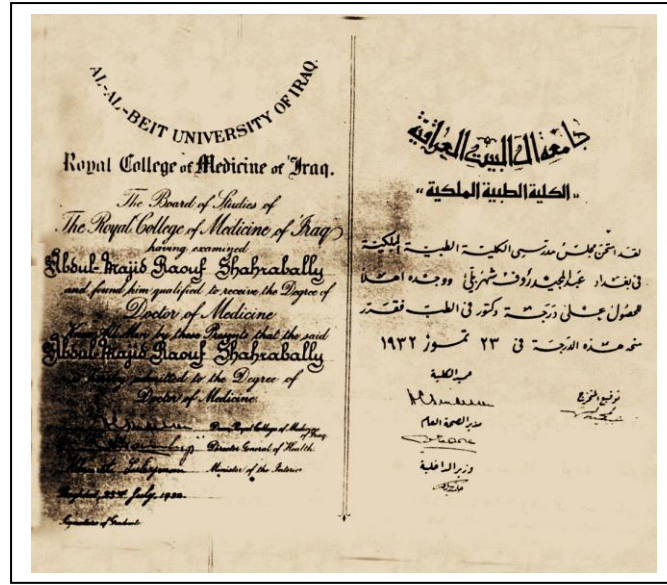 AL-AL-BEIT UNIVERSITY OF IRAQ.
Royal College of Medicine of Iraq.
The Board of Studies of
The Royal College of Medicine of Iraq
having examined
Abdul-Majid Raouf Shahrabally
and found him qualified to receive the Degree of
Doctor of Medicine
Know All Men by these Presents that the said
Abdul-Majid Raouf Shahrabally
is hereby admitted to the Degree of
Doctor of Medicine.
Dean, Royal College of Medicine of Iraq.
Director General of Health.
Minister of the Interior
Baghdad, 23rd July, 1932.
Signature of Graduate
جامعة آل البيت العراقية
"الكلية الطبية الملكية"
لقد امتحن مجلس مدرسي الكلية الطبية الملكية
في بغداد عبد المجيد رؤوف شهربلي ووجده اهلاً
للحصول على درجة دكتور في الطب فقرر
منحه هذه الدرجة في ٢٣ تموز ١٩٣٢
عميد الكلية
توقيع المتخرج
مدير الصحة العام
وزير الداخلية